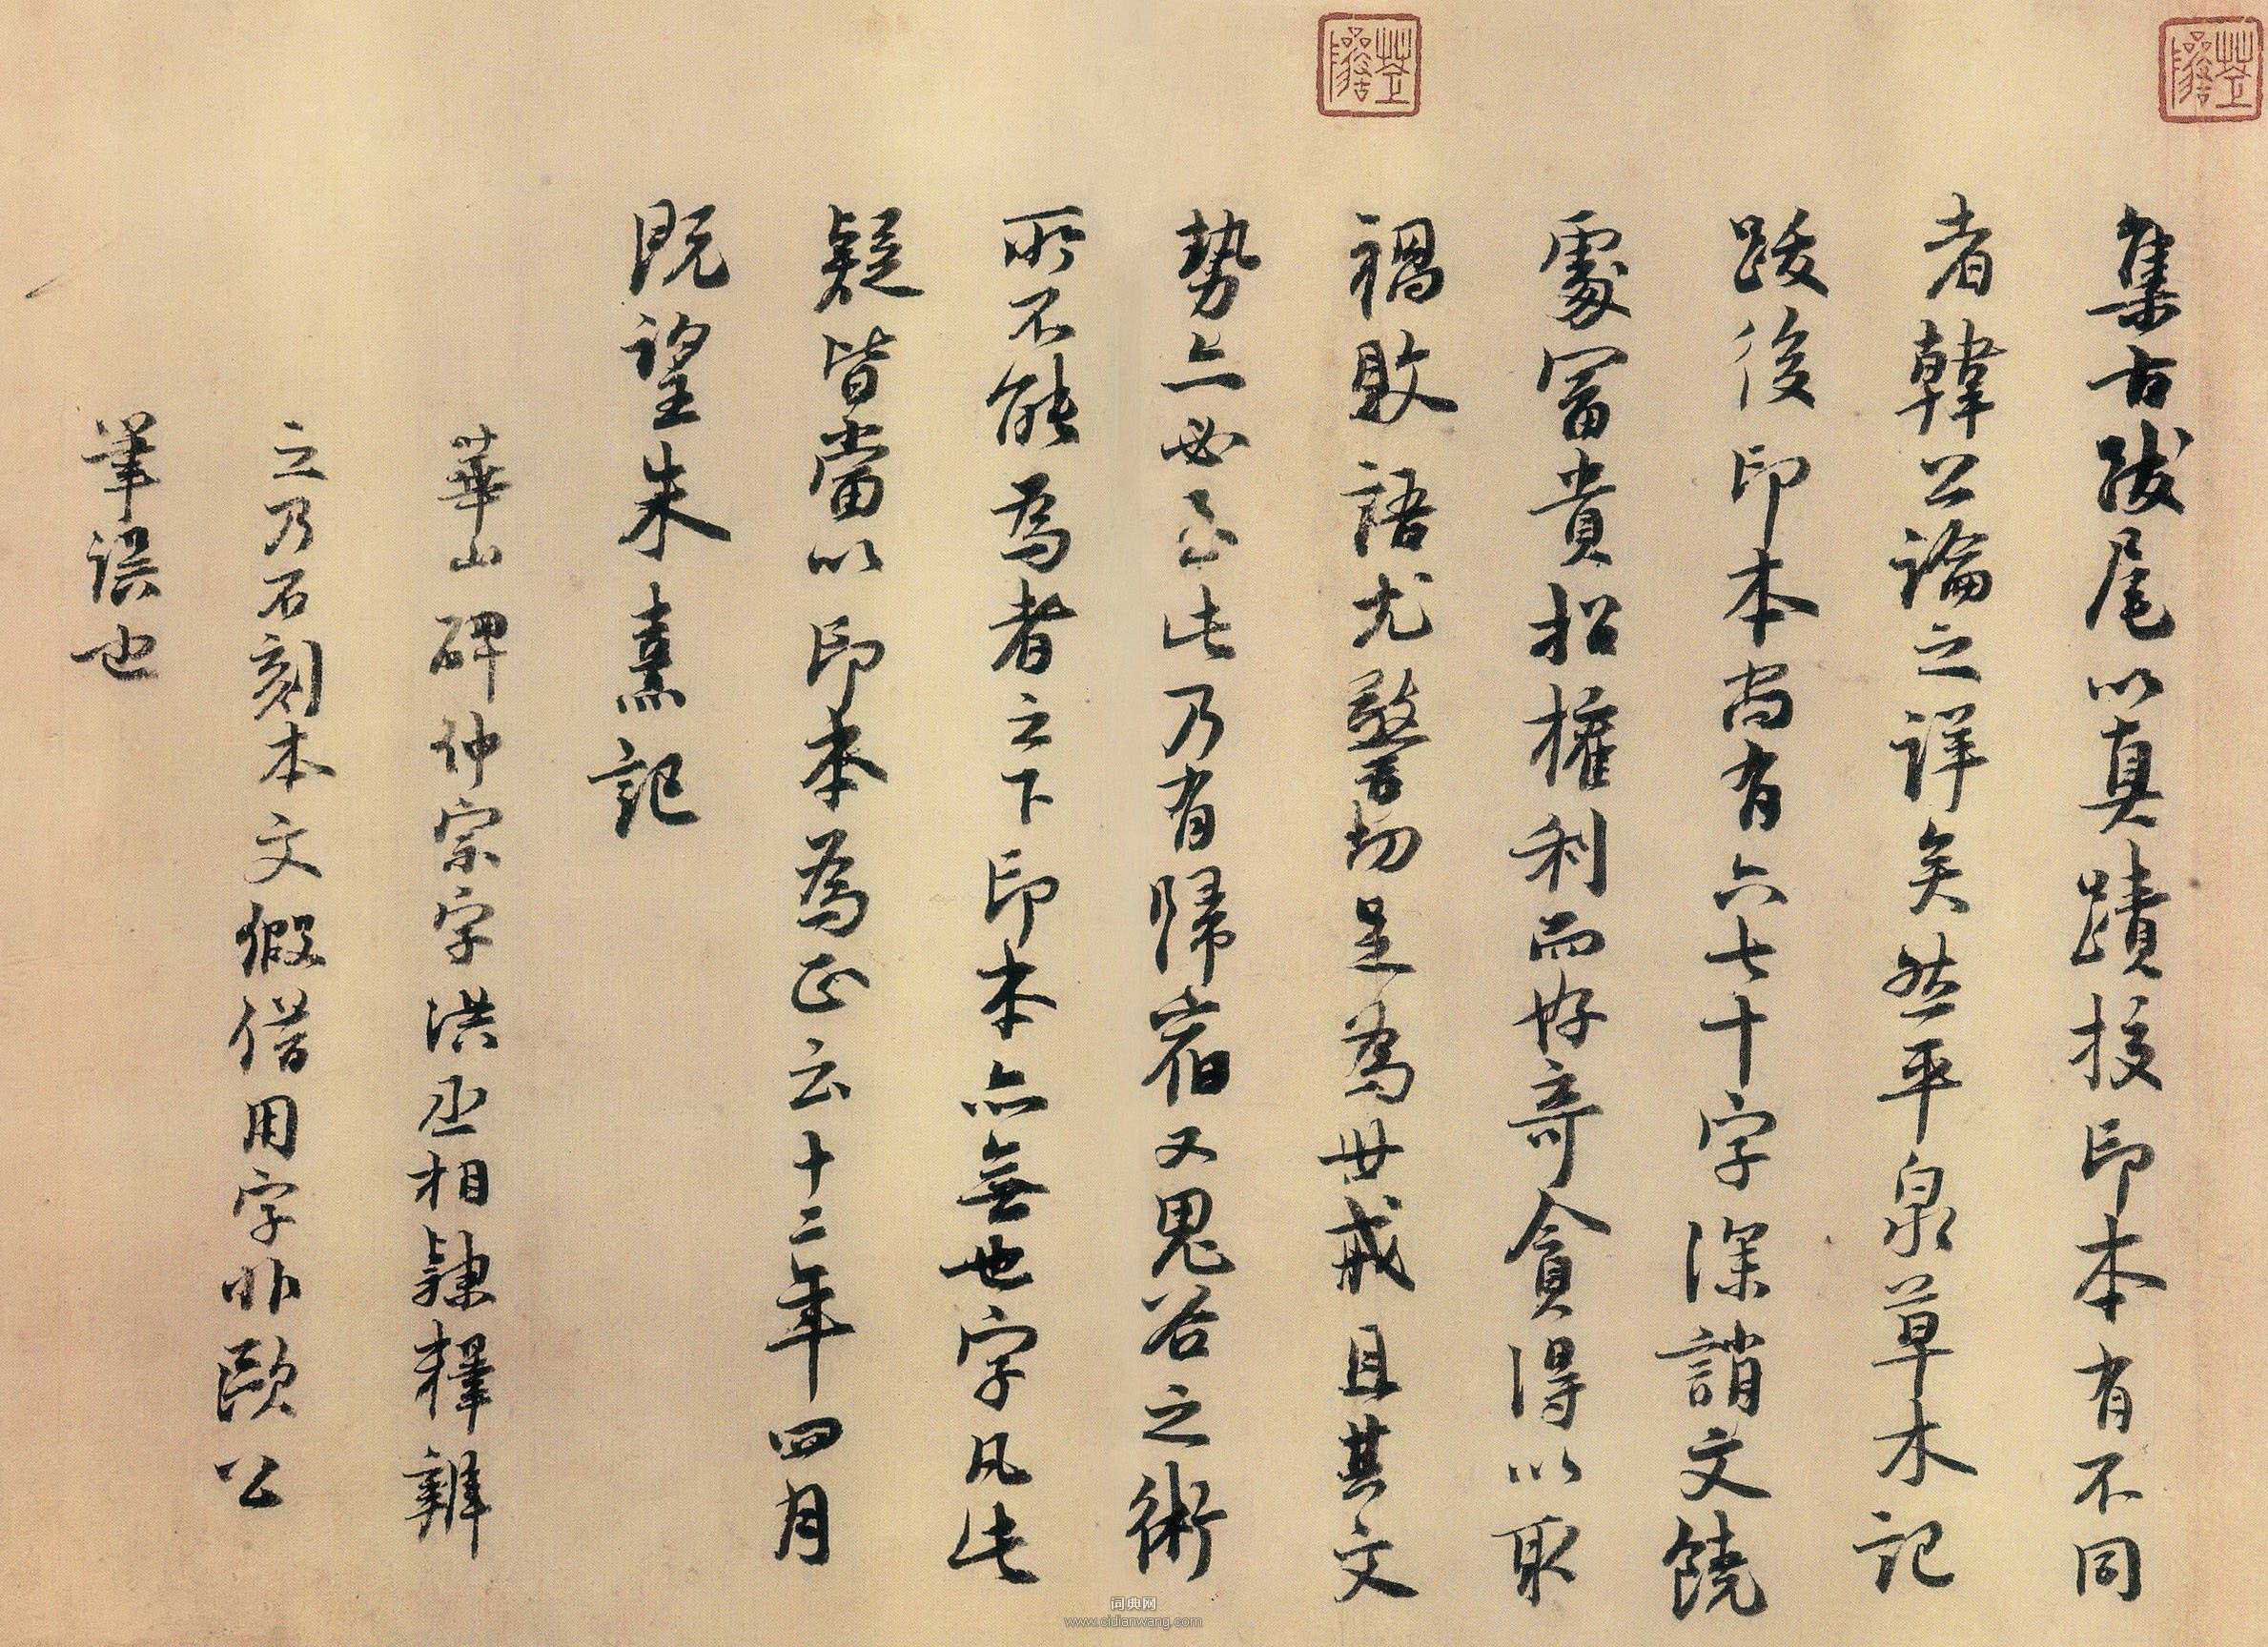 集古跋尾以真蹟校印本有不同
者韓公論之詳矣然平泉草木記
跋後印本尚有六七十字深誚文饒
處富貴招權利而好奇貪得以取
禍敗語尤警切足為世戒且其文
勢亦必至此乃有歸宿又鬼谷之術
所不能為者之下印本亦無也字凡此
疑皆當以印本為正云十二年四月
既望朱熹記
華山碑仲宗字洪丞相隸釋辨
之乃石刻本文假借用字非歐公
筆誤也
词典网
www.cidianwang.com